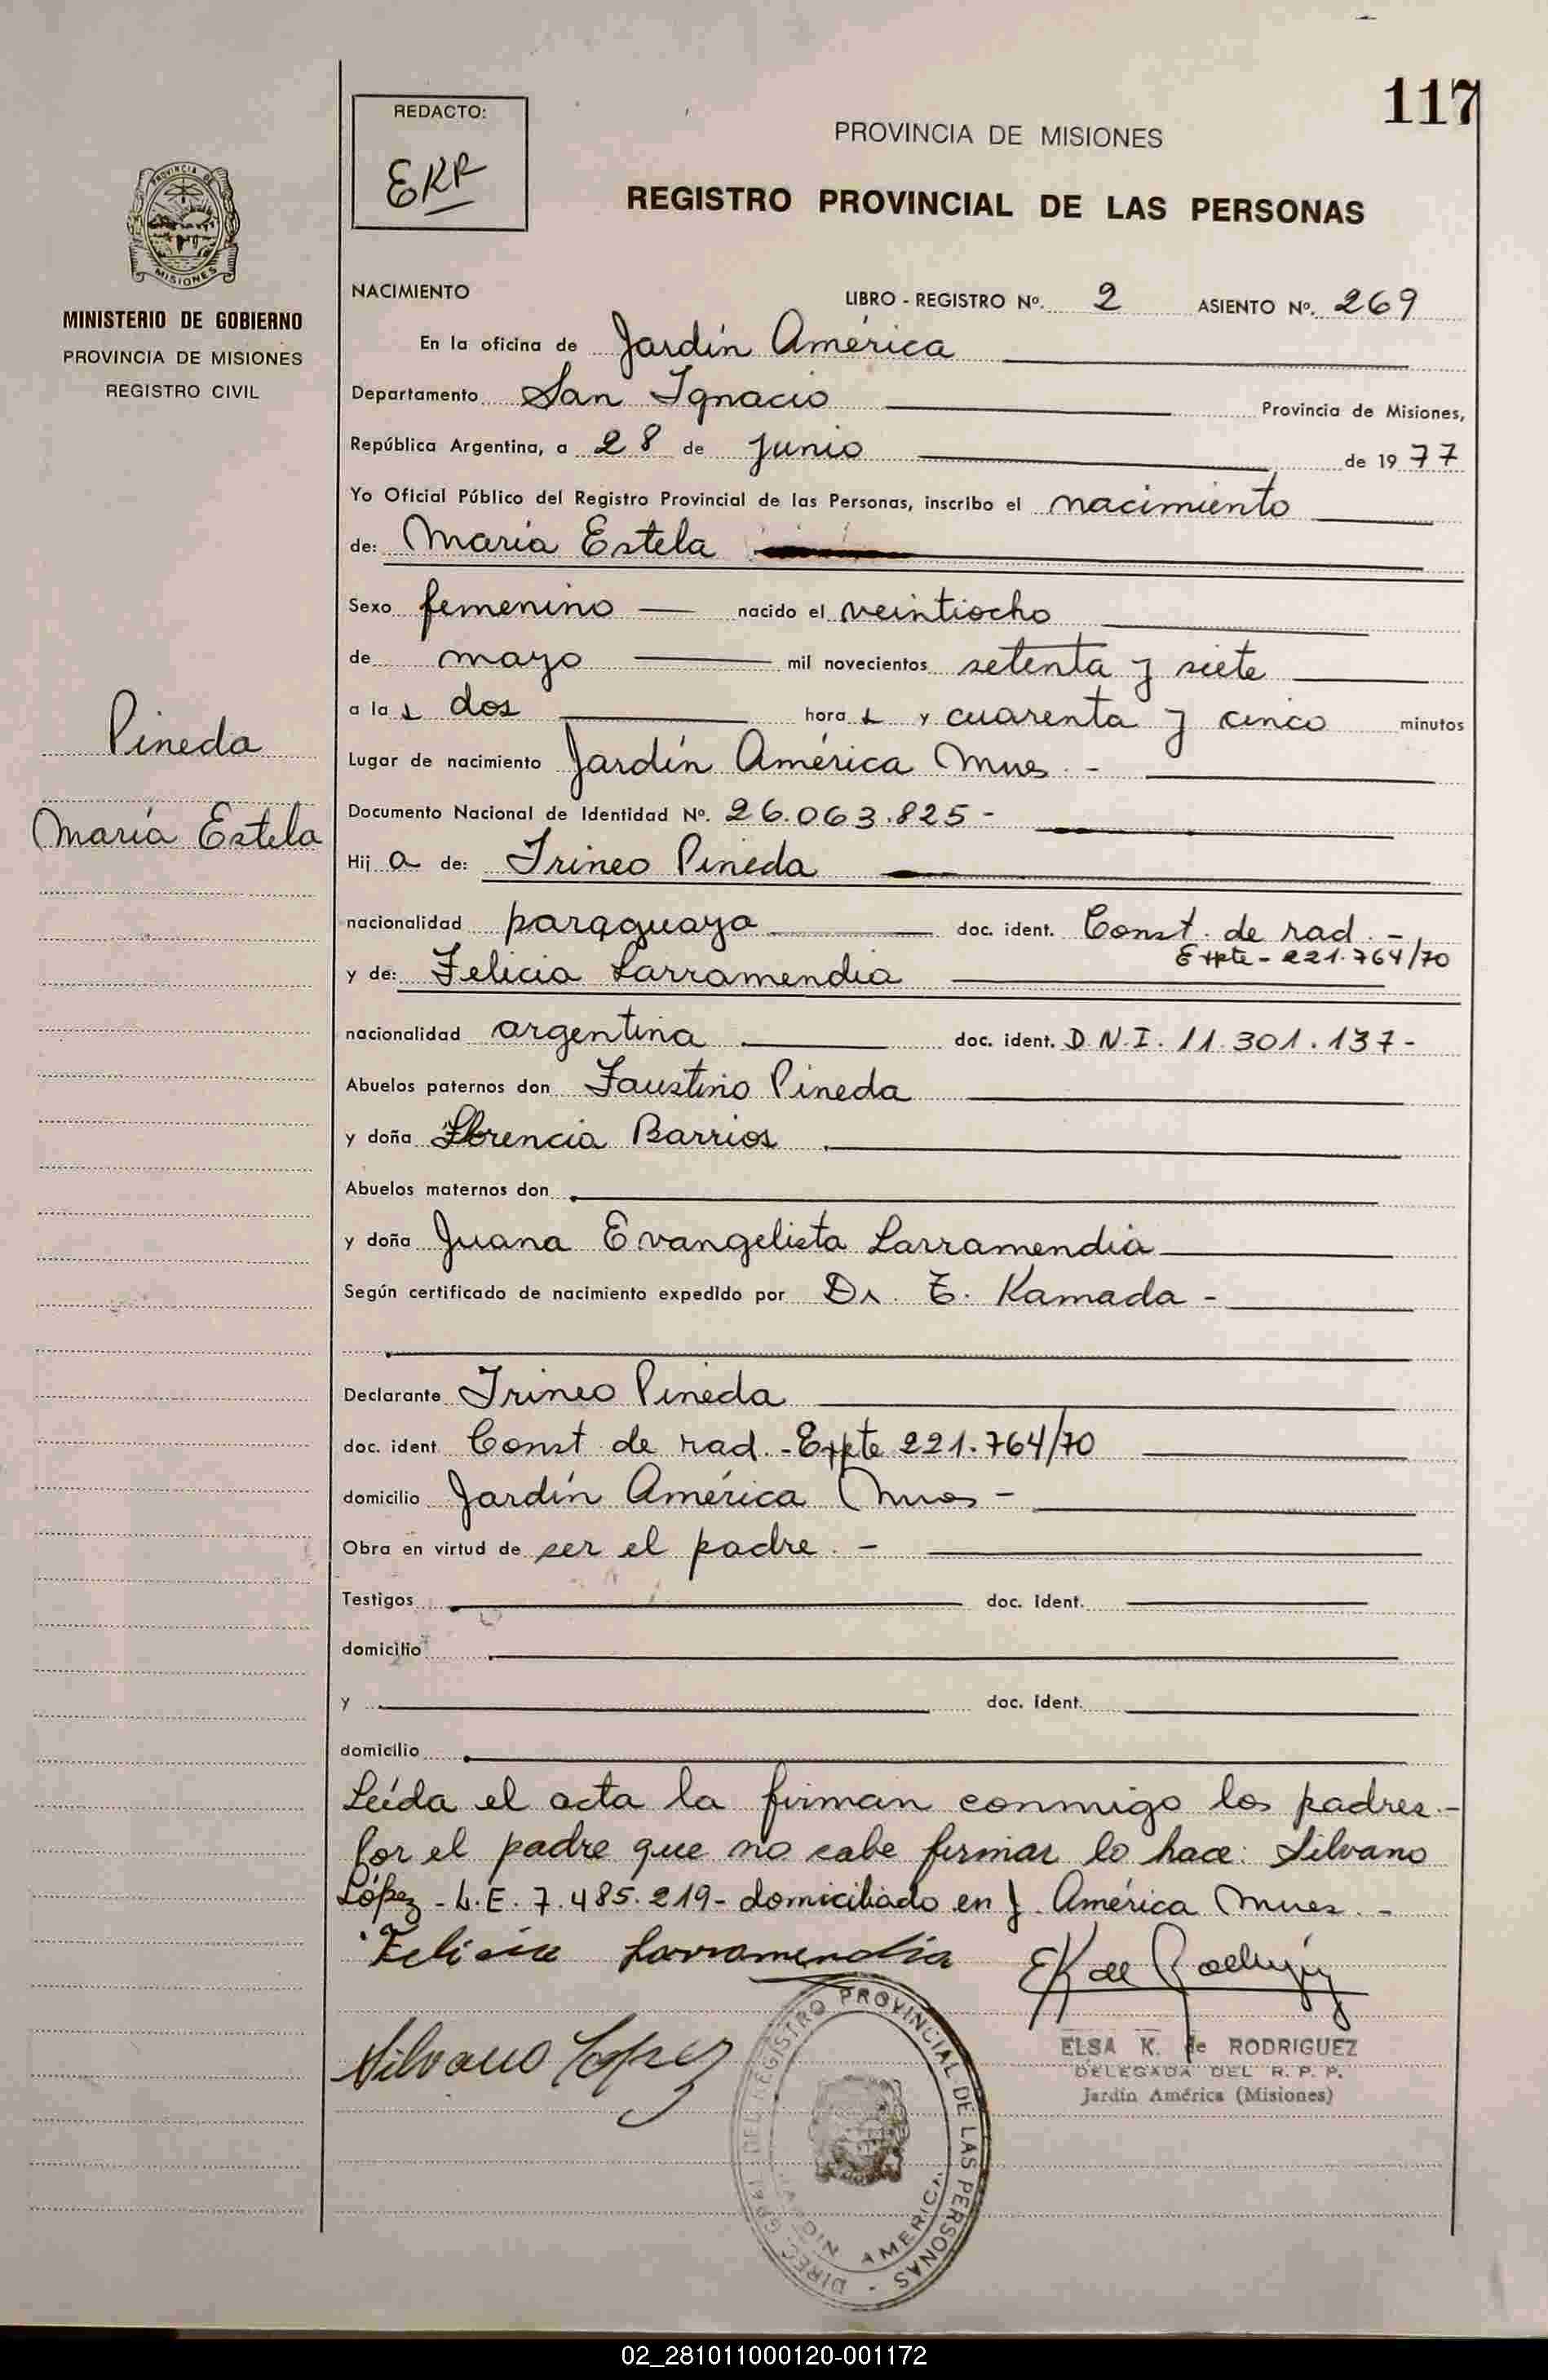 117
REDACTO:
EKR
PROVINCIA DE MISIONES
REGISTRO PROVINCIAL DE LAS PERSONAS
PROVINCIA DE
MISIONES
MINISTERIO DE GOBIERNO
PROVINCIA DE MISIONES
REGISTRO CIVIL
Pineda
María Estela
NACIMIENTO LIBRO - REGISTRO Nº. 2 ASIENTO Nº. 269
En la oficina de Jardín América
Departamento San Ignacio Provincia de Misiones,
República Argentina, a 28 de junio de 1977
Yo Oficial Público del Registro Provincial de las Personas, inscribo el nacimiento
de: María Estela
Sexo femenino — nacido el veintiocho
de mayo — mil novecientos setenta y siete
a las dos hora s y cuarenta y cinco minutos
Lugar de nacimiento Jardín América Mnes. -
Documento Nacional de Identidad Nº. 26.063.825 -
Hij a de: Irineo Pineda
nacionalidad paraguaya doc. ident. Const. de rad. -
Expte - 221.764/70
y de: Felicia Larramendia
nacionalidad argentina doc. ident. D.N.I. 11.301.137-
Abuelos paternos don Faustino Pineda
y doña Florencia Barrios
Abuelos maternos don
y doña Juana Evangelista Larramendia
Según certificado de nacimiento expedido por Dr. T. Kamada -
Declarante Irineo Pineda
doc. ident Const de rad. - Expte 221.764/70
domicilio Jardín América Mnes -
Obra en virtud de ser el padre. -
Testigos doc. ident.
domicilio
y doc. ident.
domicilio
Leída el acta la firman conmigo los padres.-
Por el padre que no sabe firmar lo hace: Silvano
López - L.E. 7.485.219- domiciliado en J. América Mnes. -
Felisia Larramendia
Silvano Lopez
ELSA K. de RODRIGUEZ
DELEGADA DEL R. P. P.
Jardín América (Misiones)
DIREC. GRAL. DEL REGISTRO PROVINCIAL DE LAS PERSONAS -
JARDIN AMERICA
02_281011000120-001172